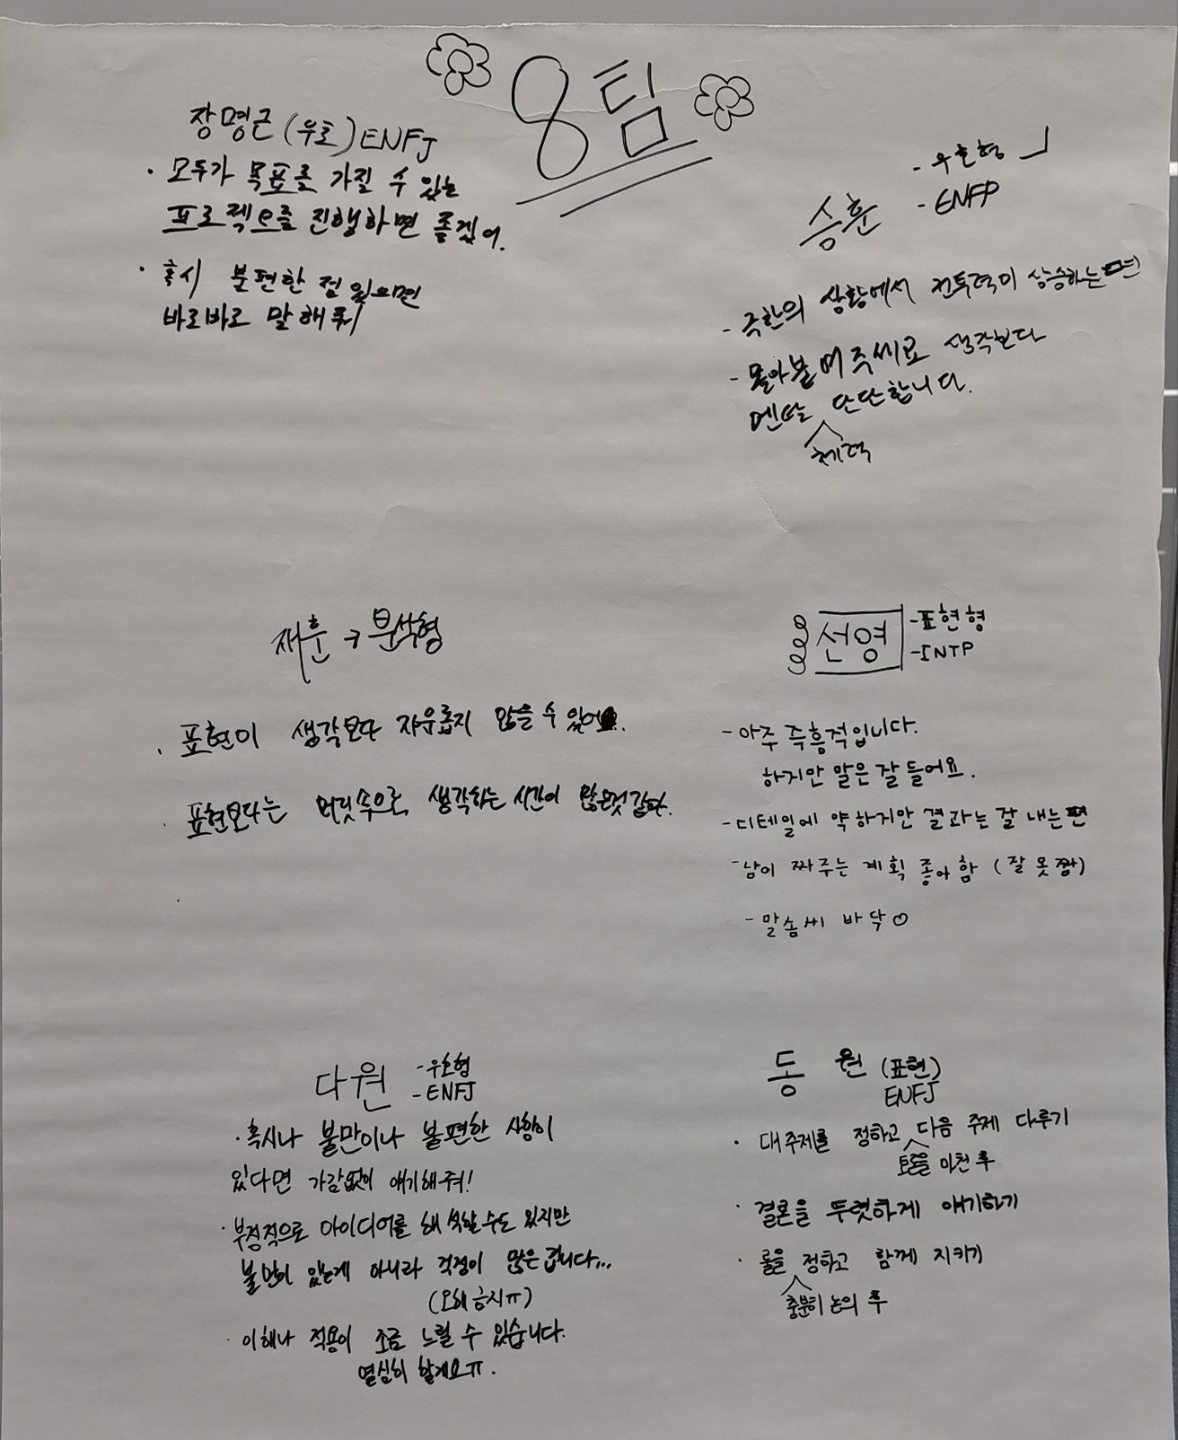 8팀
장명근 (우호) ENFJ
· 모두가 목표를 가질 수 있는
프로젝트를 진행하면 좋겠어.
· 혹시 불편한 점 있으면
바로바로 말해줘
승훈
- 우호형
- ENFP
- 극한의 상황에서 전투력이 상승하는 편
- 몰아붙여주세요 생각보다
멘탈 단단합니다.
체력
재훈 → 분석형
· 표현이 생각보다 자유롭지 않을 수 있어요.
· 표현보다는 머릿속으로 생각하는 시간이 많은것 같다.
선영
- 표현형
- INTP
- 아주 즉흥적입니다.
하지만 말은 잘 들어요.
- 디테일에 약하지만 결과는 잘 내는 편
- 남이 짜주는 계획 좋아함 (잘 못짬)
- 말솜씨 바닥
다원
- 우호형
- ENFJ
· 혹시나 불만이나 불편한 상황이
있다면 가감없이 얘기해줘!
· 부정적으로 아이디어를 해석할 수도 있지만
불만이 있는게 아니라 걱정이 많은 겁니다...
(오해 금지ㅠ)
· 이해나 적용이 조금 느릴 수 있습니다.
열심히 할게요ㅠ.
동원 (표현)
ENFJ
· 대주제를 정하고 다음 주제 다루기
토론을 마친 후
· 결론을 뚜렷하게 얘기하기
· 룰을 정하고 함께 지키기
충분히 논의 후